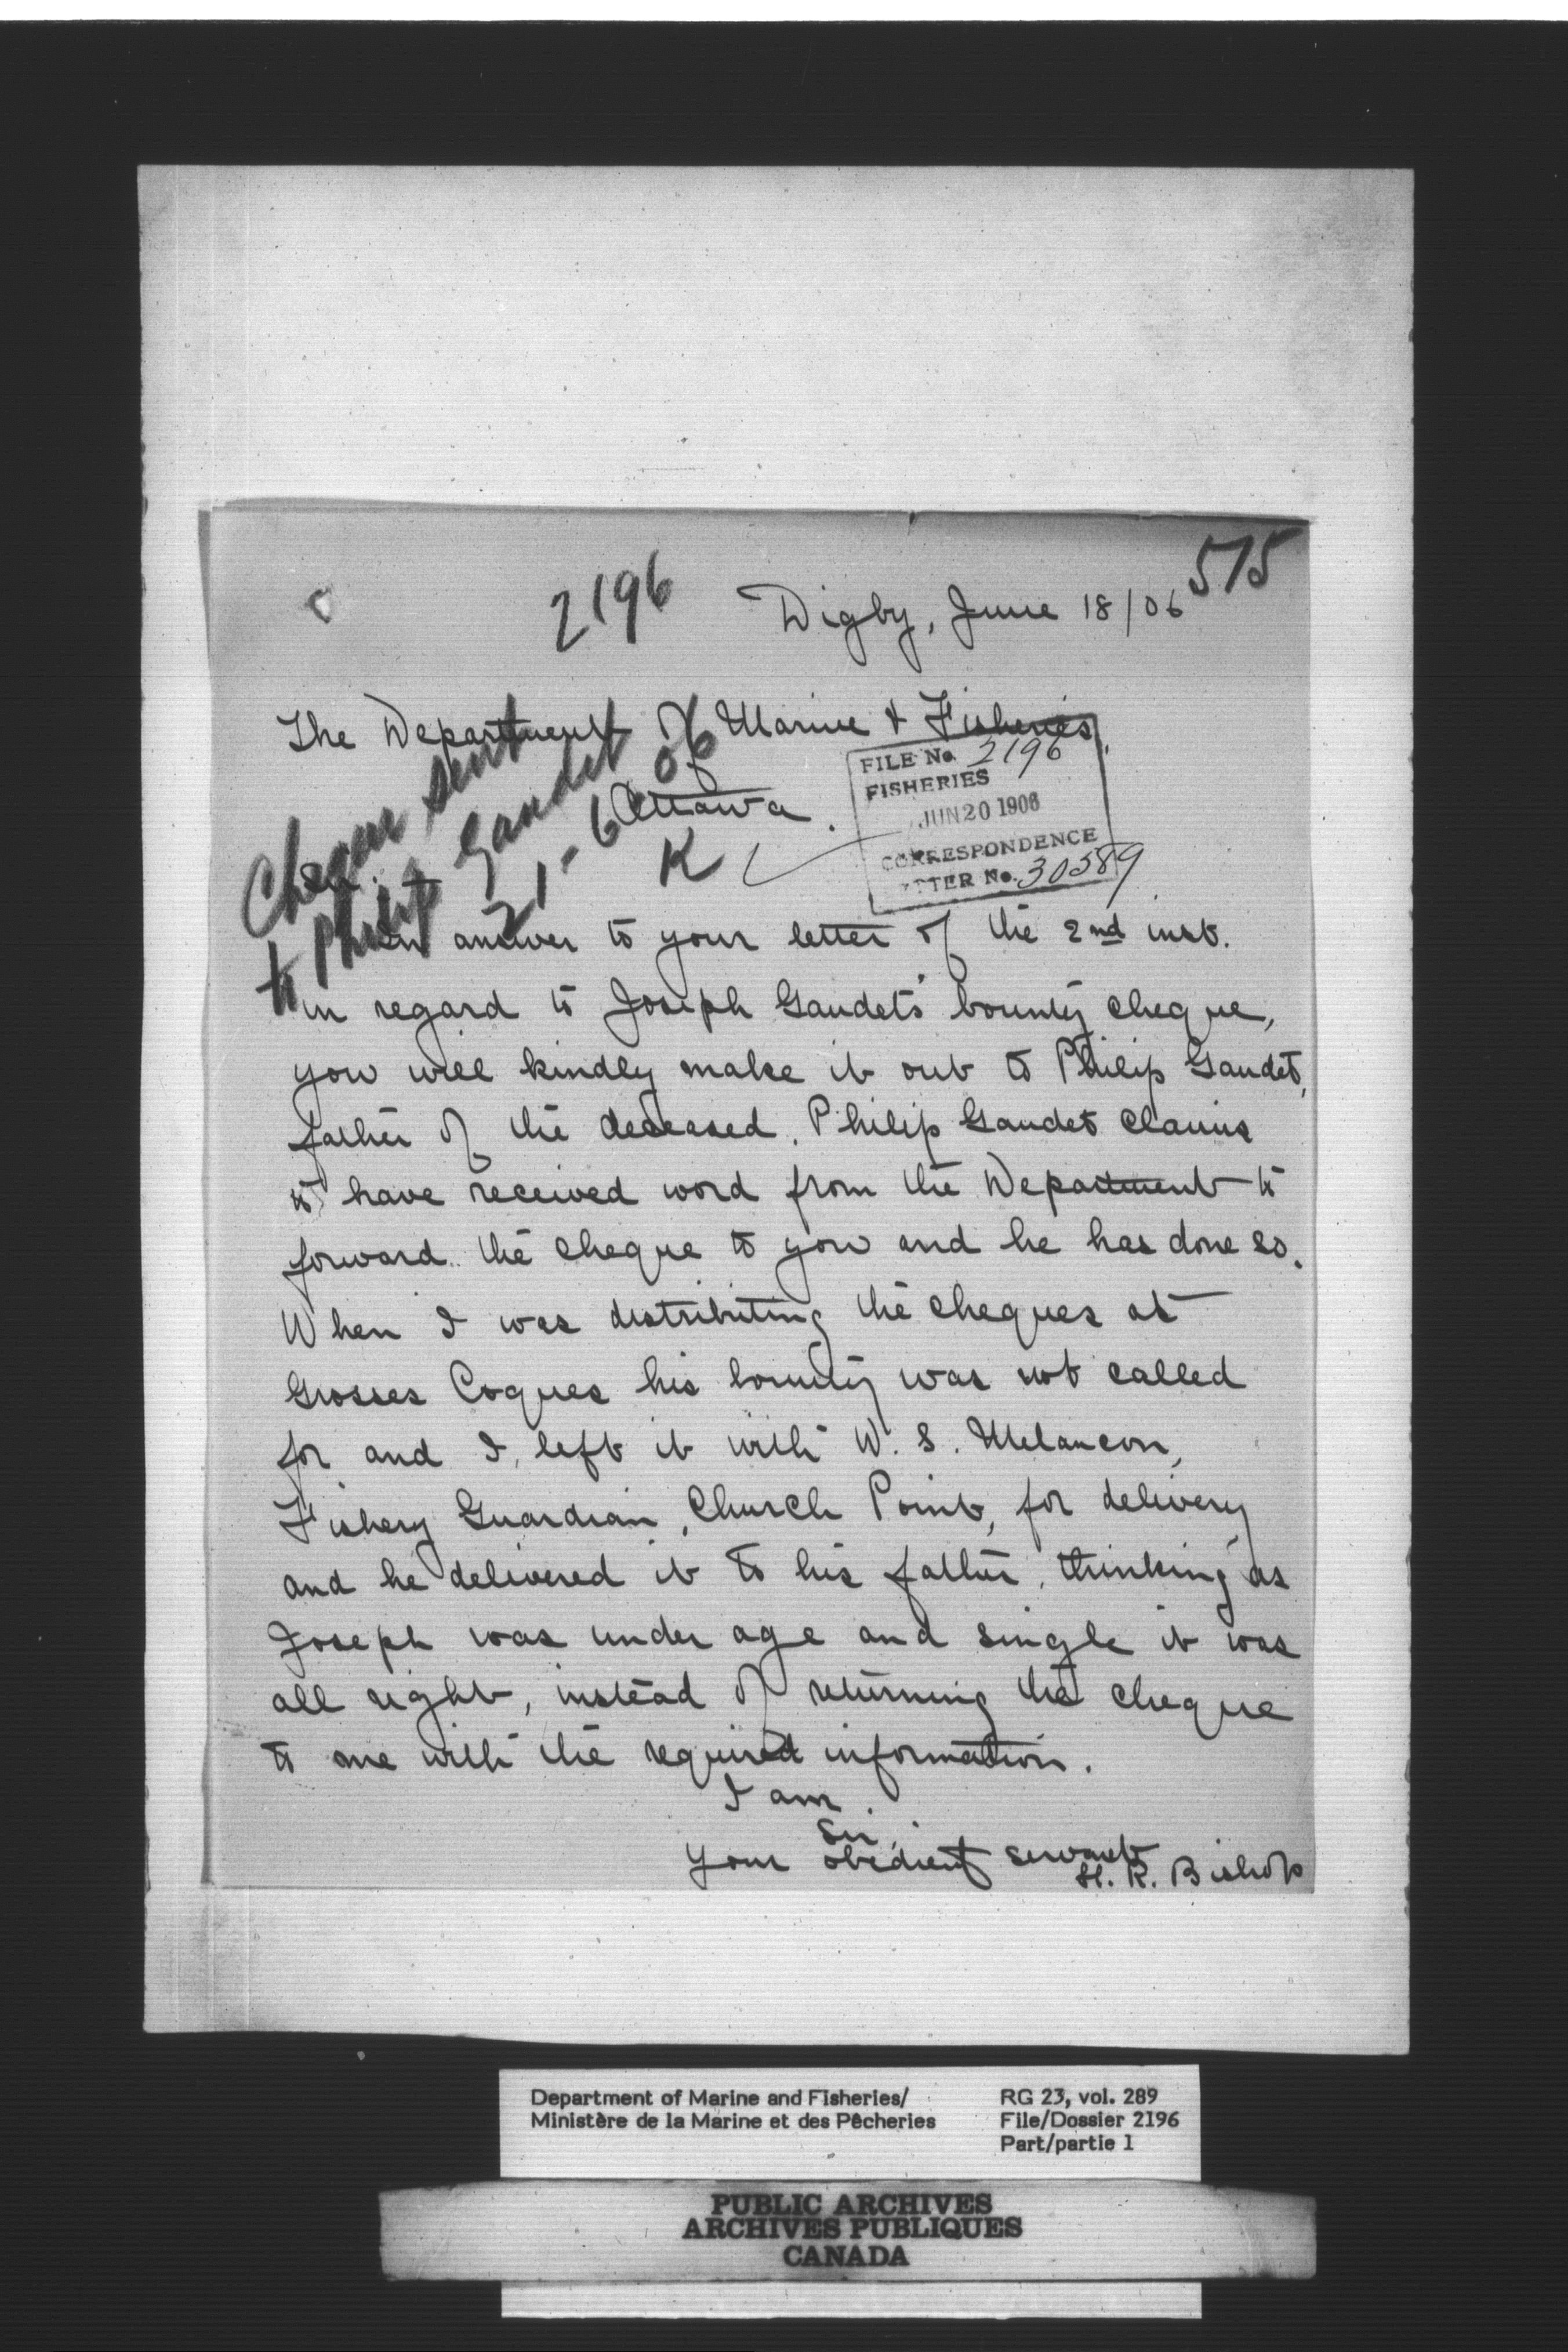 2196
575
Digby, June 18/06
The Department of Marine & Fisheries,
Ottawa.
FILE No. 2196
FISHERIES
JUN 20 1906
CORRESPONDENCE
LETTER No. 30589
Cheque sent
to Philip Gaudet
21-6-06
K
Sir.
In answer to your letter of the 2nd inst.
in regard to Joseph Gaudets' bounty cheque,
you will kindly make it out to Philip Gaudet,
father of the deceased. Philip Gaudet claims
to have received word from the Department to
forward the cheque to you and he has done so.
When I was distributing the cheques at
Grosses Coques his bounty was not called
for and I left it with W. S. Melancon,
Fishery Guardian, Church Point, for delivery
and he delivered it to his father, thinking as
Joseph was under age and single it was
all right, instead of returning the cheque
to me with the required information.
I am.
Sir,
Your obedient servant
H. R. Bishop
Department of Marine and Fisheries/
Ministère de la Marine et des Pêcheries
RG 23, vol. 289
File/Dossier 2196
Part/partie 1
PUBLIC ARCHIVES
ARCHIVES PUBLIQUES
CANADA